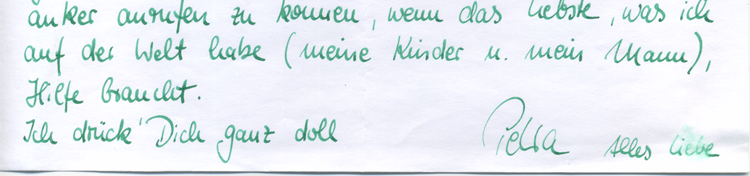 anker anrufen zu können, wenn das liebste, was ich
auf der Welt habe (meine Kinder u. mein Mann),
Hilfe braucht.
Ich drück' Dich ganz doll
Petra Alles liebe